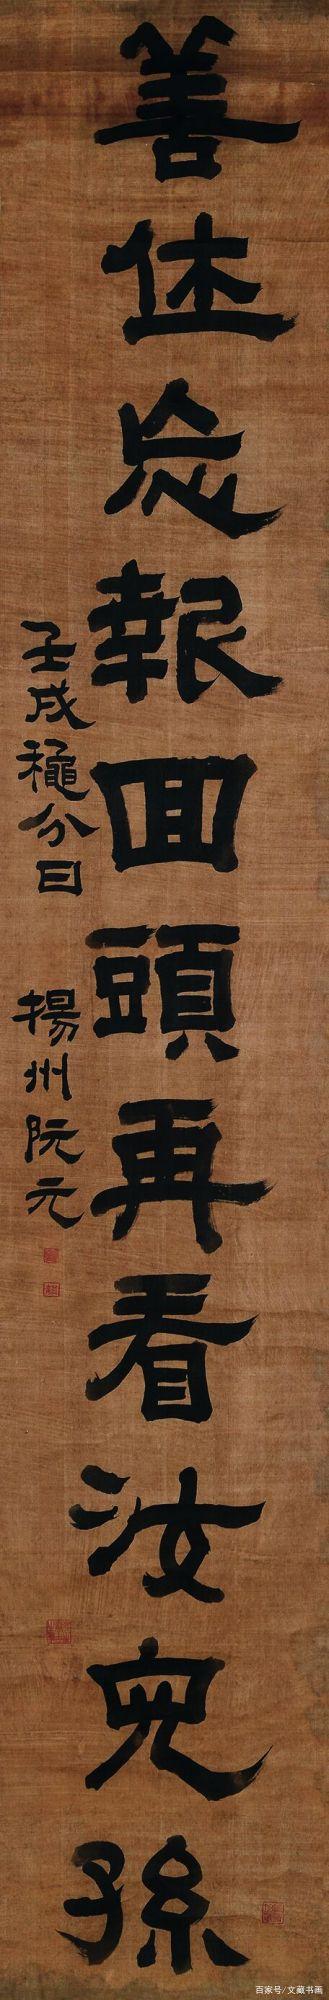 善休忘報回頭再看汝兒孫
壬戌穐分日 揚州阮元
百家号/文藏书画